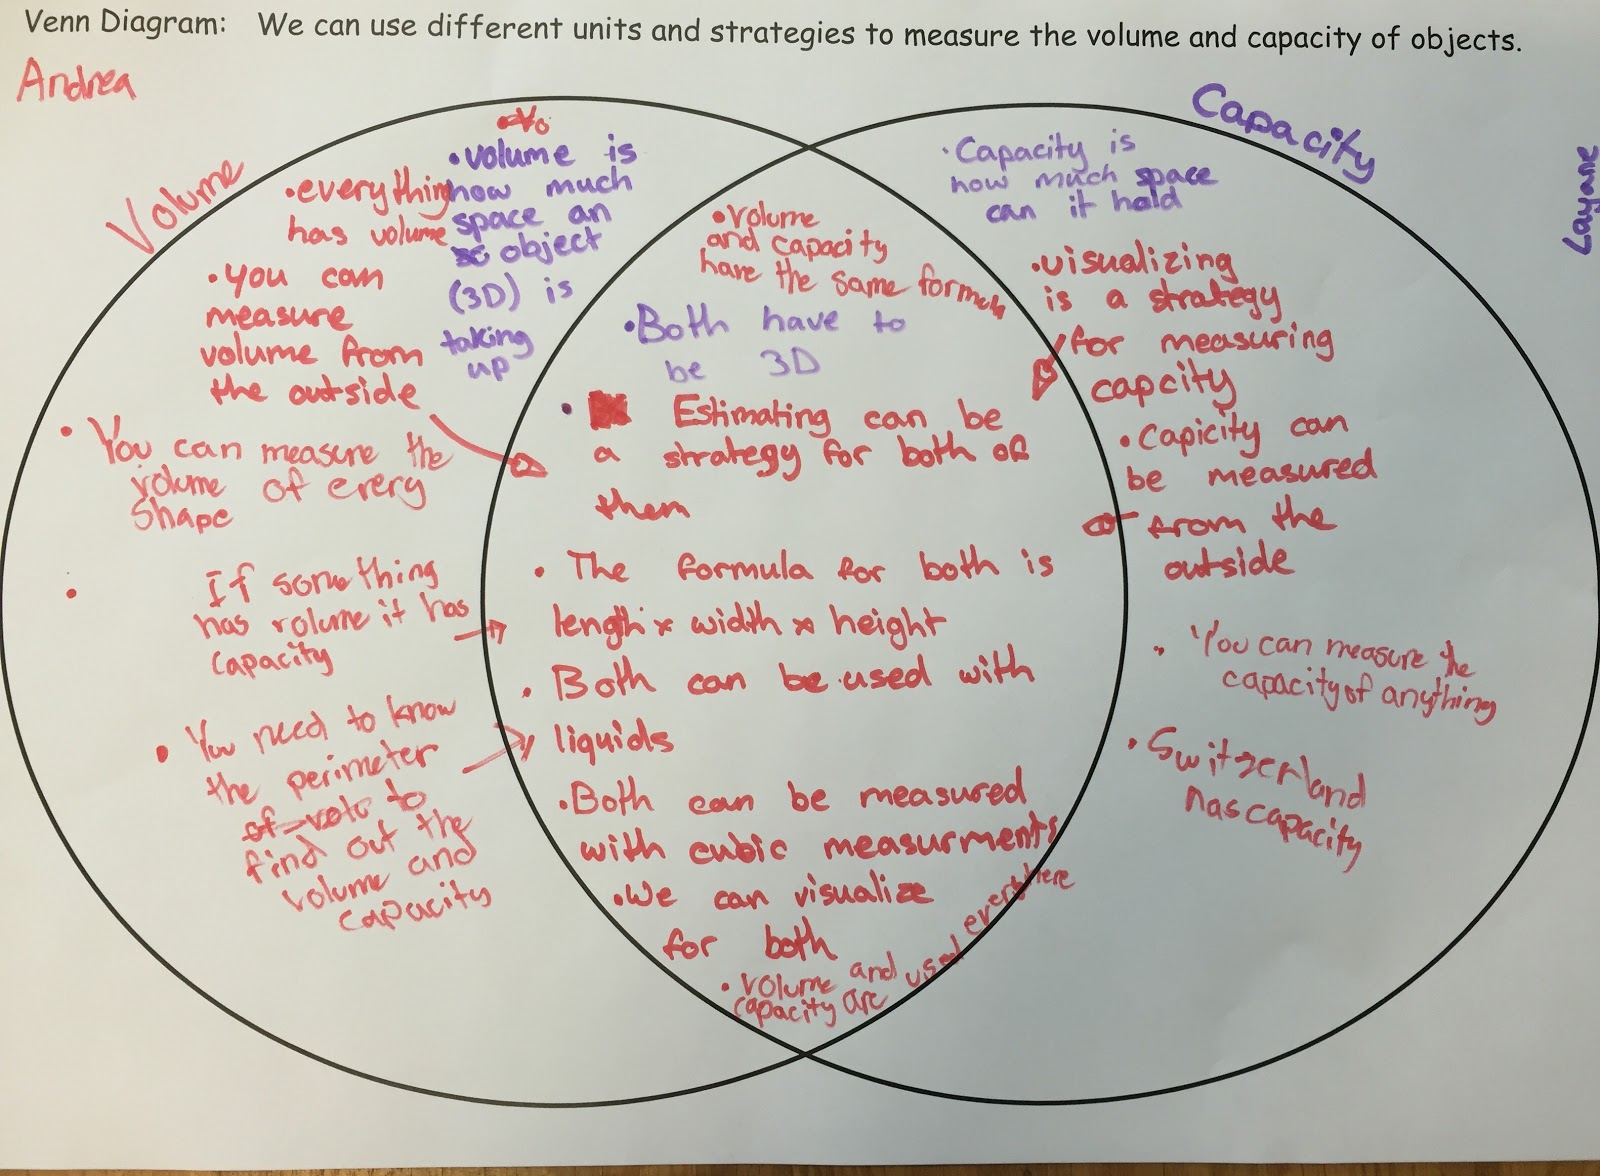 Venn Diagram: We can use different units and strategies to measure the volume and capacity of objects.
Andrea
Layane
Volume
Vo
• volume is
how much
space an
object
(3D) is
taking
up
• everything
has volume
• you can
measure
volume from
the outside
• You can measure the
volume of every
shape
• If something
has volume it has
capacity
• You need to know
the perimeter
of volu to
find out the
volume and
capacity
• volume
and capacity
have the same formula
• Both have to
be 3D
• Estimating can be
a strategy for both of
them
• The formula for both is
length x width x height
• Both can be used with
liquids
• Both can be measured
with cubic measurments
• We can visualize
for both
• volume and used everywhere
capacity are
Capacity
• Capacity is
how much space
can it hold
• visualizing
is a strategy
for measuring
capcity
• Capicity can
be measured
from the
outside
• You can measure the
capacity of anything
• Switzerland
has capacity